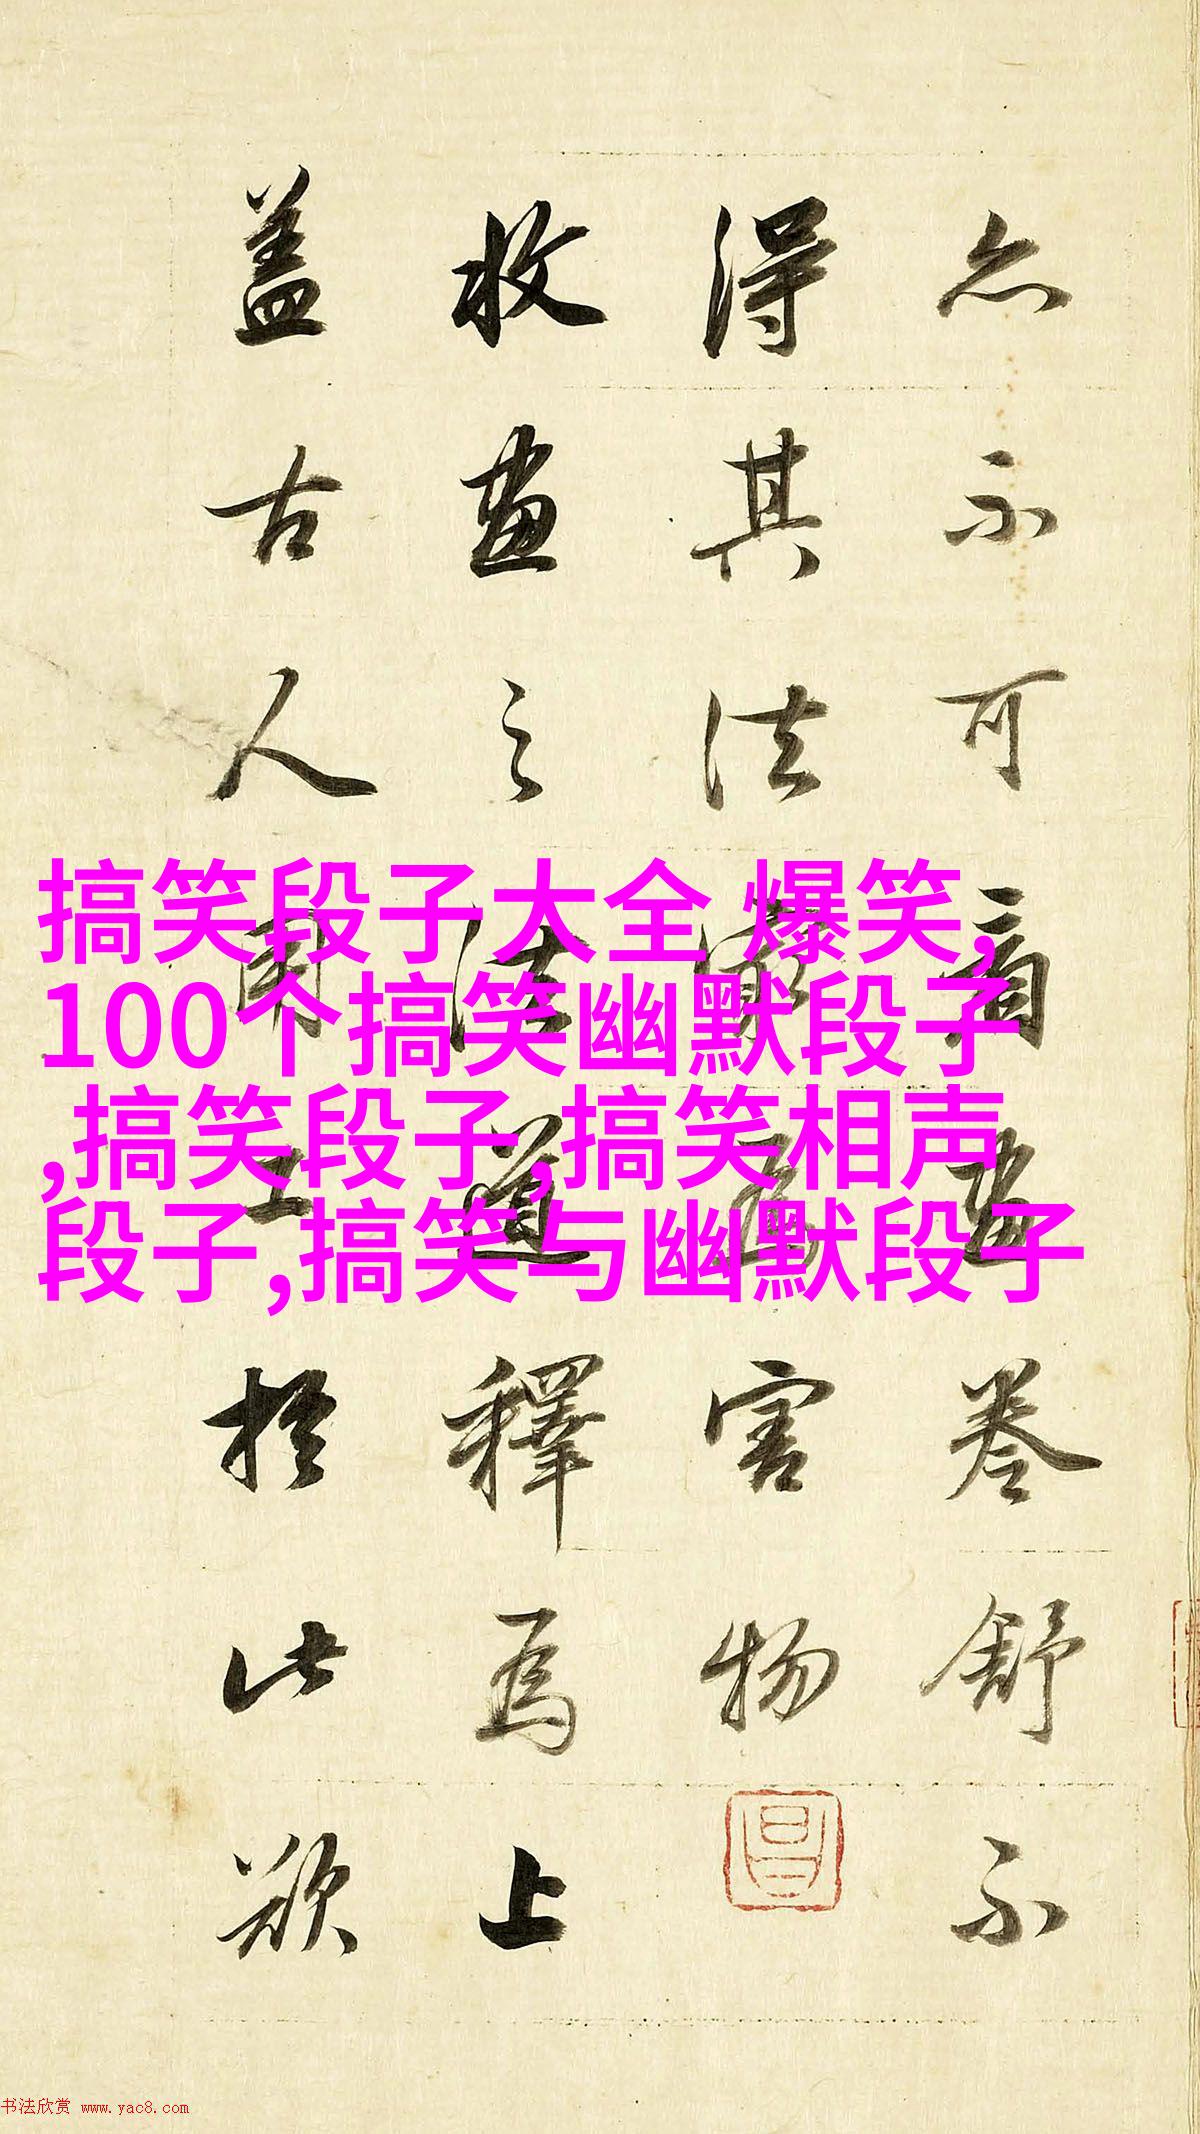 亦不可看畫卷舒不
得其法最為害物
收畫之法道釋為上
盖古人用工於此欲
搞笑段子大全 爆笑,
100个搞笑幽默段子
,搞笑段子,搞笑相声
段子,搞笑与幽默段子
书法欣赏 www.yac8.com